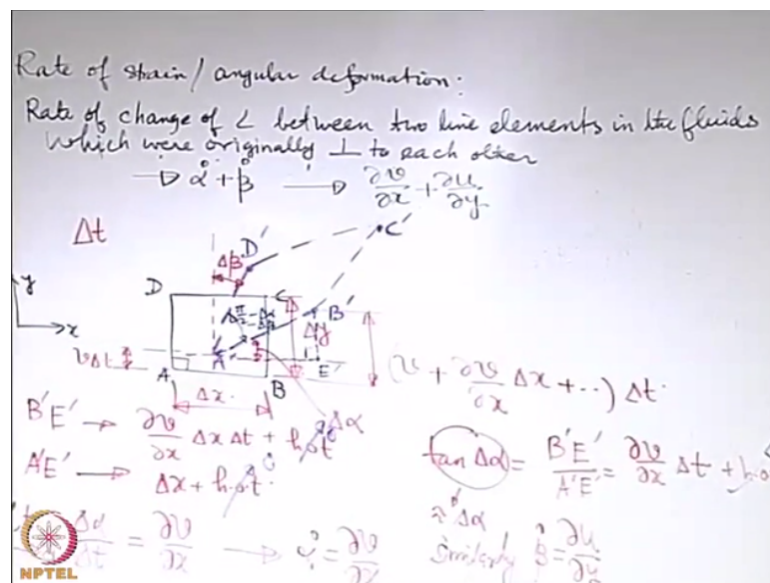 Rate of strain / angular deformation:
Rate of change of ∠ between two line elements in the fluids
which were originally ⊥ to each other
→ α̇ + β̇ → ∂v/∂x + ∂u/∂y
Δt
D'
C'
Δβ
y
D
C
π/2 - Δα - Δβ
B'
Δy
x
A'
E'
vΔt
A
B
Δx
(v + ∂v/∂x Δx + ..) Δt
B'E' → ∂v/∂x Δx Δt + h.o.t
Δα
A'E' → Δx + h.o.t.
tan Δα = B'E'/A'E' = ∂v/∂x Δt + h.o
≈ Δα
Δα/Δt = ∂v/∂x → α̇ = ∂v/∂x
Similarly β̇ = ∂u/∂y
NPTEL